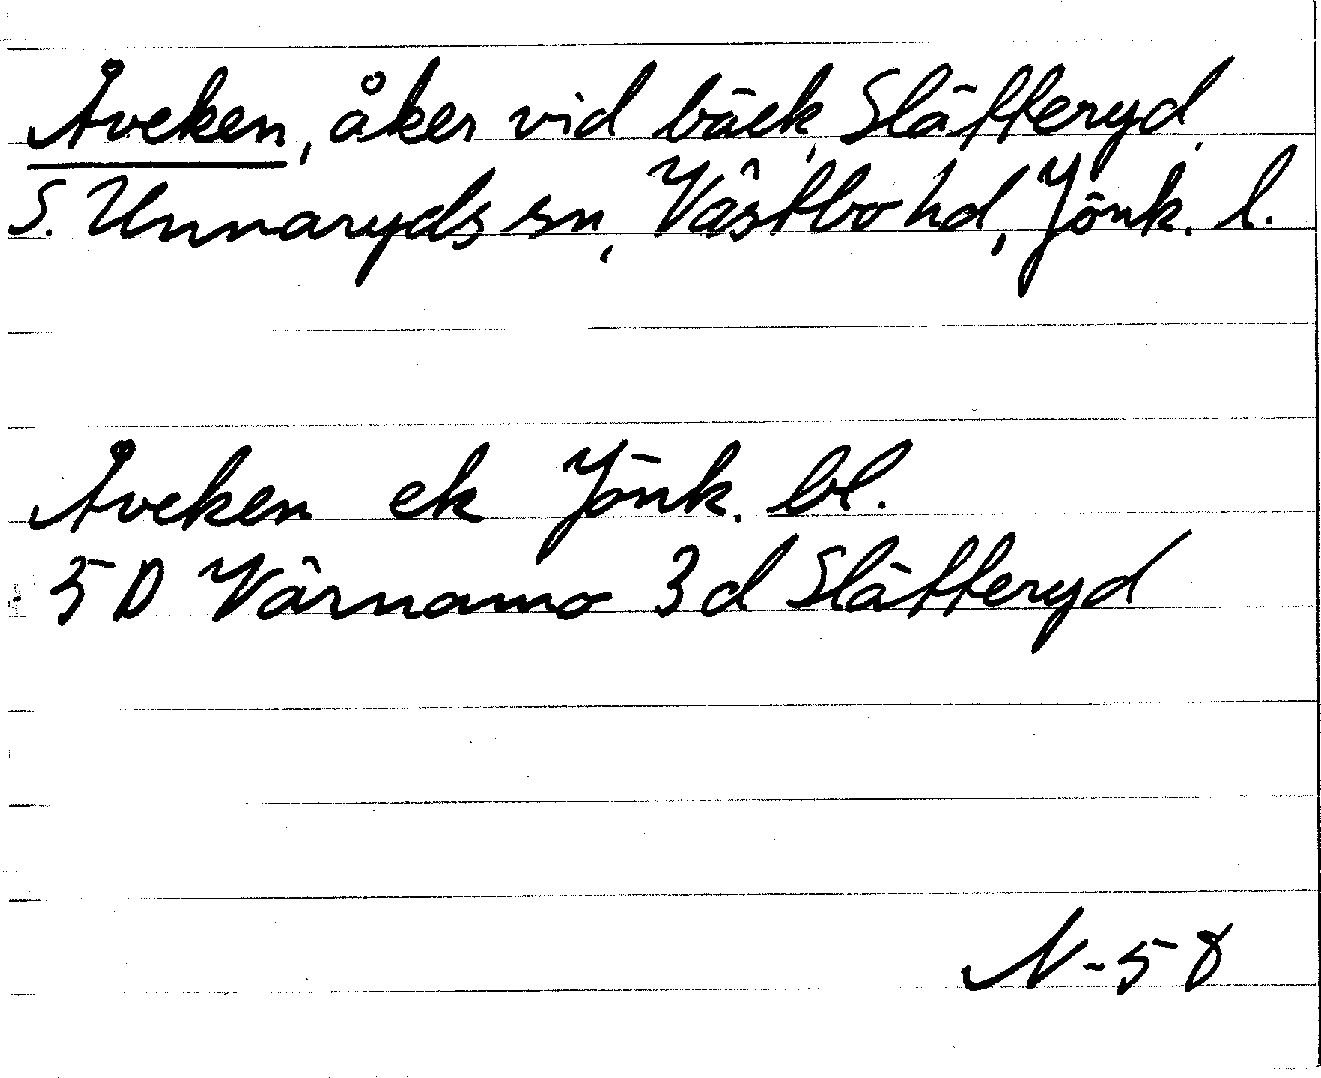 Åveken, åker vid bäck, Slätteryd,
S. Unnaryds sn, Västbo hd, Jönk. l.
Åveken ek Jönk. bl.
5D Värnamo 3d Slätteryd
N-58